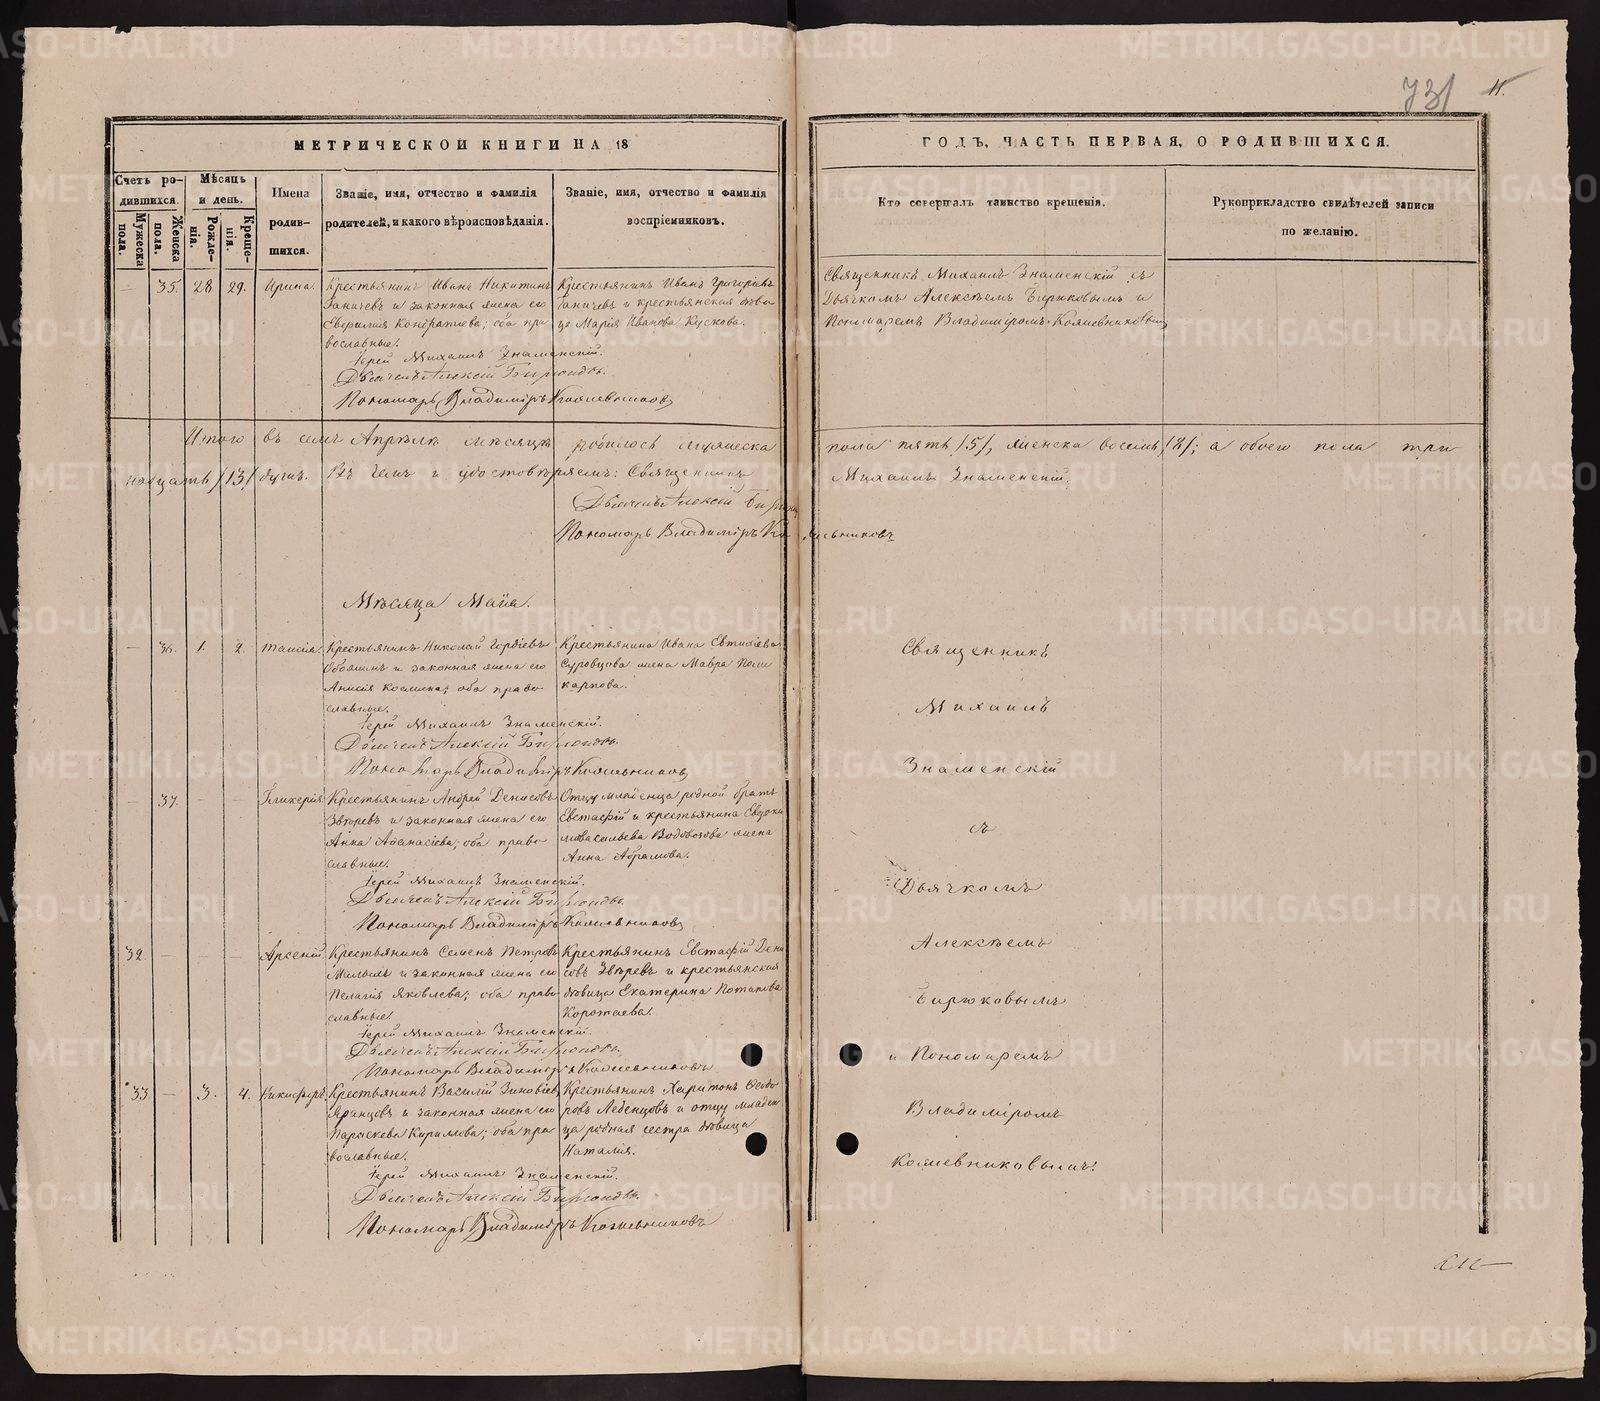 731 11.
МЕТРИЧЕСКОЙ КНИГИ НА 18
ГОДЪ, ЧАСТЬ ПЕРВАЯ, О РОДИВШИХСЯ.
Счетъ ро-
дившихся.
Мужеска пола.
Женска пола.
Мѣсяцъ
и день.
Рожде-
нія.
Креще-
нія.
Имена
родив-
шихся.
Званіе, имя, отчество и фамилія
родителей, и какого вѣроисповѣданія.
Званіе, имя, отчество и фамилія
воспріемниковъ.
Кто совершалъ таинство крещенія.
Рукоприкладство свидѣтелей записи
по желанію.
35. 28. 29. Ирина.
Крестьянинъ Иванъ Никитинъ
и законная жена его
Кондратьева; оба пра-
вославные.
Іерей Михаилъ Знаменскій.
Дьячекъ Алексій Бирюковъ.
Пономарь Владиміръ Кожевниковъ
Крестьянинъ Иванъ Григорьевъ
и крестьянская дѣви
ца Марія Иванова Кускова.
Священникъ Михаилъ Знаменскій съ
Дьячкомъ Алексѣемъ Бирюковымъ и
Пономаремъ Владиміромъ Кожевниковымъ
Итого въ семъ Апрѣлѣ мѣсяцѣ родилось мужеска пола пять /5/, женска восемь /8/; а обоего пола три
надцать /13/ душъ. Въ чемъ и удостовѣряемъ: Священникъ Михаилъ Знаменскій.
Дьячекъ Алексій
Пономарь Владиміръ Кожевниковъ
Мѣсяца Маія.
36. 1. 2. Таисія.
Крестьянинъ Николай
и законная жена его
Анисія Космина; оба право-
славные.
Іерей Михаилъ Знаменскій.
Дьячекъ Алексій Бирюковъ.
Пономарь Владиміръ Кожевниковъ
Крестьянина Ивана Евтихіева
Суровцова жена Мавра Поли
карпова.
37. Гликерія
Крестьянинъ Андрей Денисовъ
Звѣревъ и законная жена его
Анна Афанасіева; оба право-
славные.
Іерей Михаилъ Знаменскій.
Дьячекъ Алексій Бирюковъ.
Пономарь Владиміръ Кожевниковъ
Отцу младенца родной братъ
Евстафій и крестьянина Евдоки
ма Васильева Водовозова жена
Анна Абрамова.
32. Арсеній.
Крестьянинъ Семенъ Петровъ
и законная жена его
Пелагія Яковлева; оба право-
славные.
Іерей Михаилъ Знаменскій.
Дьячекъ Алексій Бирюковъ.
Пономарь Владиміръ Кожевниковъ
Крестьянинъ Евстафій Дени
совъ Звѣревъ и крестьянская
дѣвица Екатерина Потапова
Коротаева.
33. 3. 4. Никифоръ.
Крестьянинъ Василій Зиновіевъ
и законная жена его
Параскева Кирилова; оба пра-
вославные.
Іерей Михаилъ Знаменскій.
Дьячекъ Алексій Бирюковъ.
Пономарь Владиміръ Кожевниковъ
Крестьянинъ Харитонъ Ѳедо
ровъ Леденцовъ и отцу младен
ца родная сестра дѣвица
Наталія.
Священникъ
Михаилъ
Знаменскій
съ
Дьячкомъ
Алексѣемъ
Бирюковымъ
и Пономаремъ
Владиміромъ
Кожевниковымъ.
METRIKI.GASO-URAL.RU